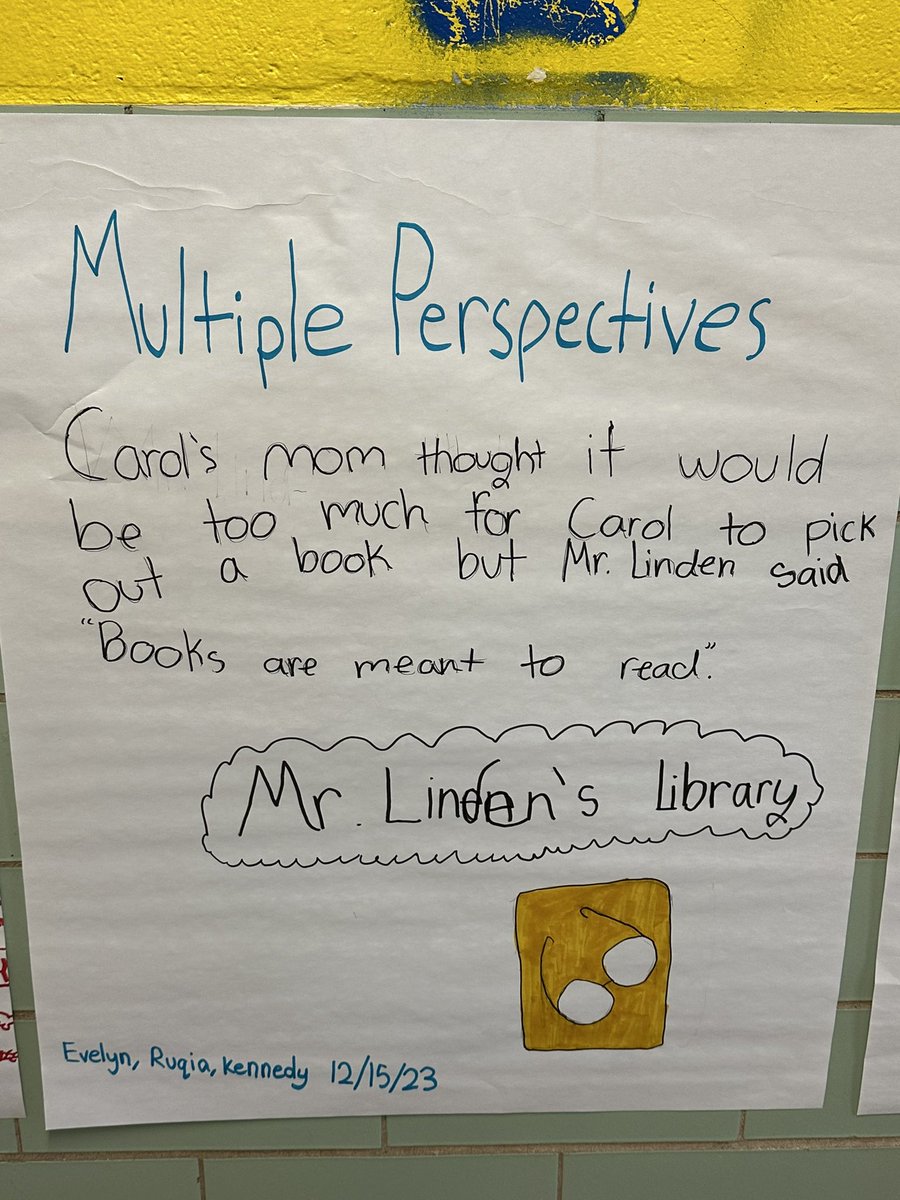 Multiple Perspectives
Carol's mom thought it would
be too much for Carol to pick
out a book but Mr. Linden said
"Books are meant to read".
Mr. Linden's Library
Evelyn, Ruqia, Kennedy 12/15/23